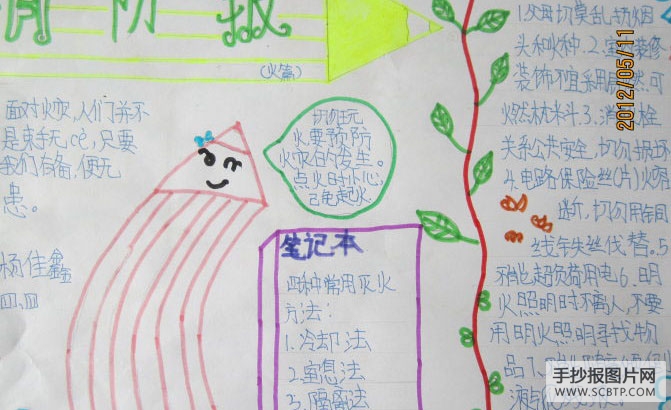 消防报
(火篇)
面对火灾,人们并不
是束手无ce,只要
我们有备,便无
患。
杨佳鑫
四、四
切勿玩
火要预防
火灾的发生。
点火时小心
己免起火
笔记本
四种常用灭火
方法:
1.冷却法
2.窒息法
3.隔离法
1.父母切莫乱扔烟
头和火种.2.室内装修
装饰不宜采用易燃可
燃材料.3.消火栓
关系公共安全,切勿损坏
4.电路保险丝(片)火熔
断,切勿用铜
线铁丝代替。5
不能超负荷用电6.明
火照明时不离人,不要
用明火照明寻找物
品7.
2012/05/11
手抄报图片网
WWW.SCBTP.COM